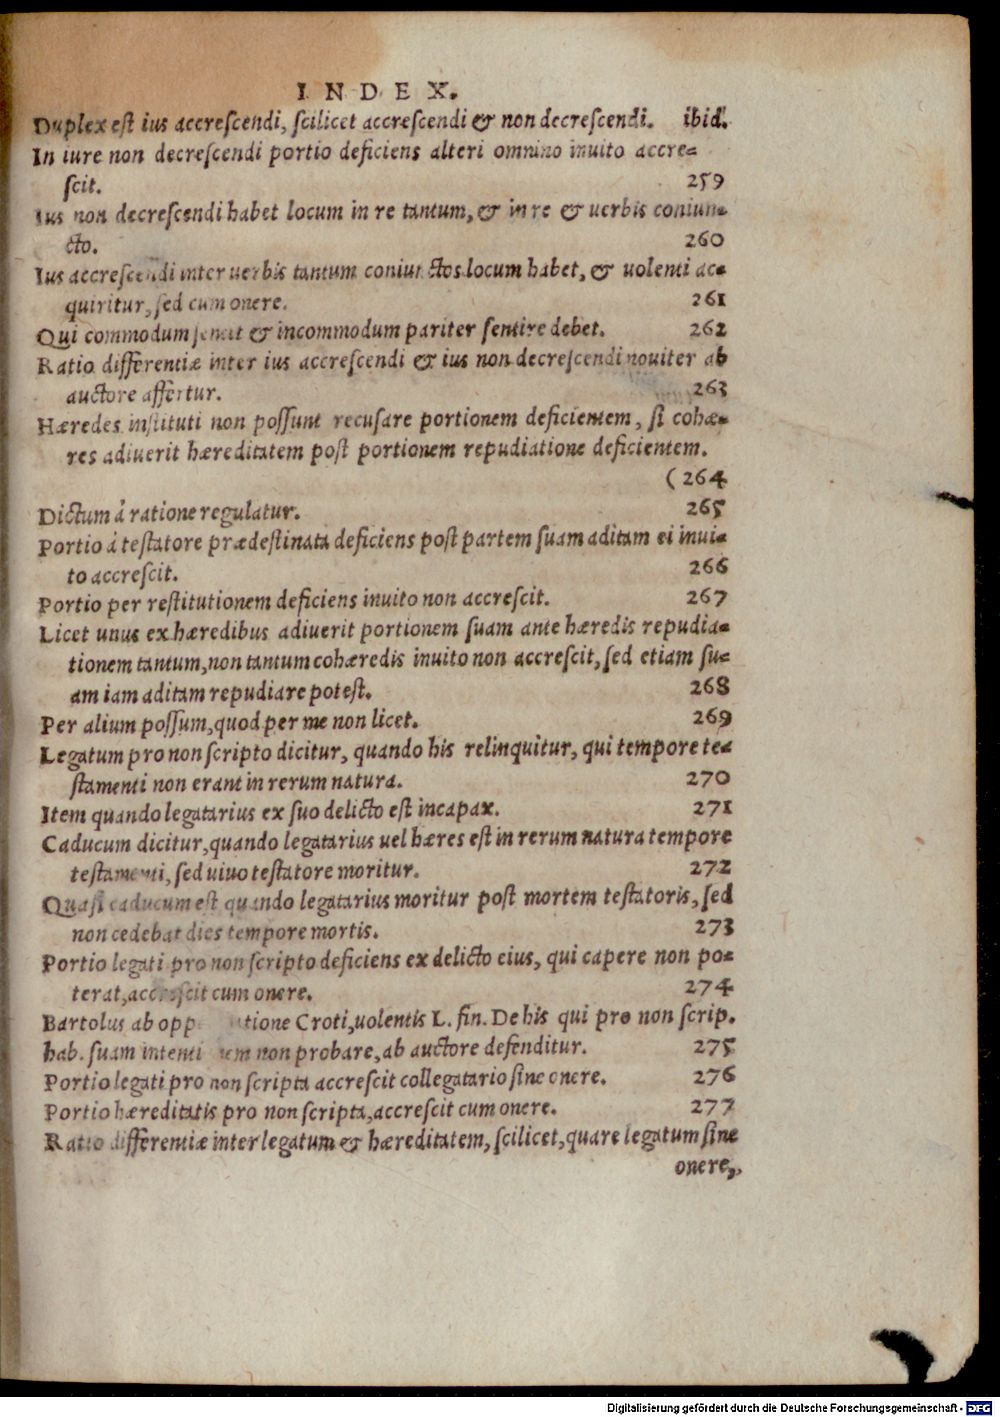 INDEX.
Duplex est ius accrescendi, scilicet accrescendi & non decrescendi. ibid.
In iure non decrescendi portio deficiens alteri omnino inuito accre=
scit. 259
Ius non decrescendi habet locum in re tantum, & in re & uerbis coniun=
cto. 260
Ius accrescendi inter uerbis tantum coniunctos locum habet, & uolenti ac=
quiritur, sed cum onere. 261
Qui commodum sentit & incommodum pariter sentire debet. 262
Ratio differentiæ inter ius accrescendi & ius non decrescendi nouiter ab
auctore affertur. 263
Hæredes instituti non possunt recusare portionem deficientem, si cohæ=
res adiuerit hæreditatem post portionem repudiatione deficientem.
(264
Dictum à ratione regulatur. 265
Portio à testatore prædestinata deficiens post partem suam aditam ei inui=
to accrescit. 266
Portio per restitutionem deficiens inuito non accrescit. 267
Licet unus ex hæredibus adiuerit portionem suam ante hæredis repudia=
tionem tantum, non tantum cohæredis inuito non accrescit, sed etiam su=
am iam aditam repudiare potest. 268
Per alium possum, quod per me non licet. 269
Legatum pro non scripto dicitur, quando his relinquitur, qui tempore te=
stamenti non erant in rerum natura. 270
Item quando legatarius ex suo delicto est incapax. 271
Caducum dicitur, quando legatarius uel hæres est in rerum natura tempore
testamenti, sed uiuo testatore moritur. 272
Quasi caducum est quando legatarius moritur post mortem testatoris, sed
non cedebat dies tempore mortis. 273
Portio legati pro non scripto deficiens ex delicto eius, qui capere non po=
terat, accrescit cum onere. 274
Bartolus ab Croti, uolentis L. fin. De his qui pro non scrip.
hab. suam non probare, ab auctore defenditur. 275
Portio legati pro non scripta accrescit collegatario sine onere. 276
Portio hæreditatis pro non scripta, accrescit cum onere. 277
Ratio differentiæ inter legatum & hæreditatem, scilicet, quare legatum sine
onere,
Digitalisierung gefördert durch die Deutsche Forschungsgemeinschaft - DFG